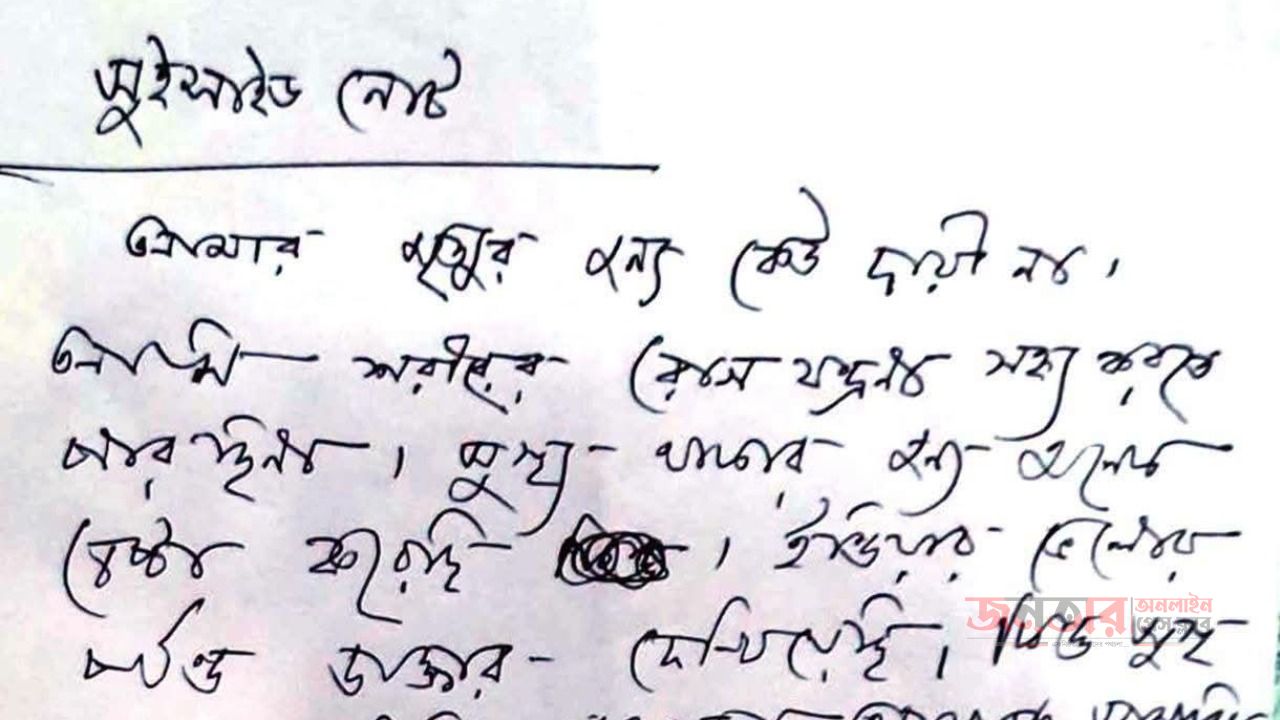 সুইসাইড নোট
আমার মৃত্যুর জন্য কেউ দায়ী না।
আমি শরীরের রোগ যন্ত্রনা সহ্য করতে
পারছিনা। সুস্থ্য থাকার জন্য অনেক
চেষ্টা করেছি। ইন্ডিয়ার ভেলোর
পর্যন্ত ডাক্তার দেখিয়েছি। কিন্তু সুস্থ
জনতার অনলাইন